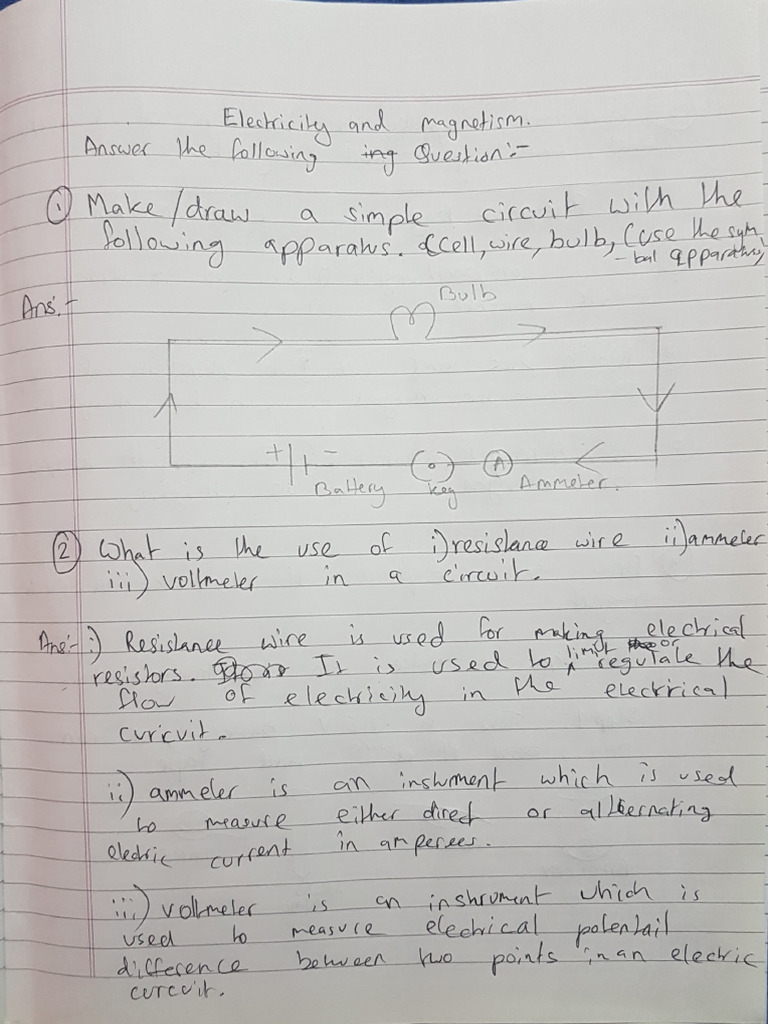 Electricity and magnetism.
Answer the following ing Question:-
① Make/draw a simple circuit with the
following apparatus. (cell, wire, bulb, (use the sym
- bal apparatus)
Ans:-
Bulb
+ -
A
Battery key Ammeter.
② What is the use of i) resistance wire ii) ammeter
iii) voltmeter in a circuit.
Ans:- i) Resistance wire is used for making electrical
resistors. It is used to limit or regulate the
flow of electricity in the electrical
curicuit.
ii) ammeter is an instument which is used
to measure either direct or alternating
electric current in amperees.
iii) voltmeter is an instrument which is
used to measure electrical potentail
difference between two points in an electric
curcuit.